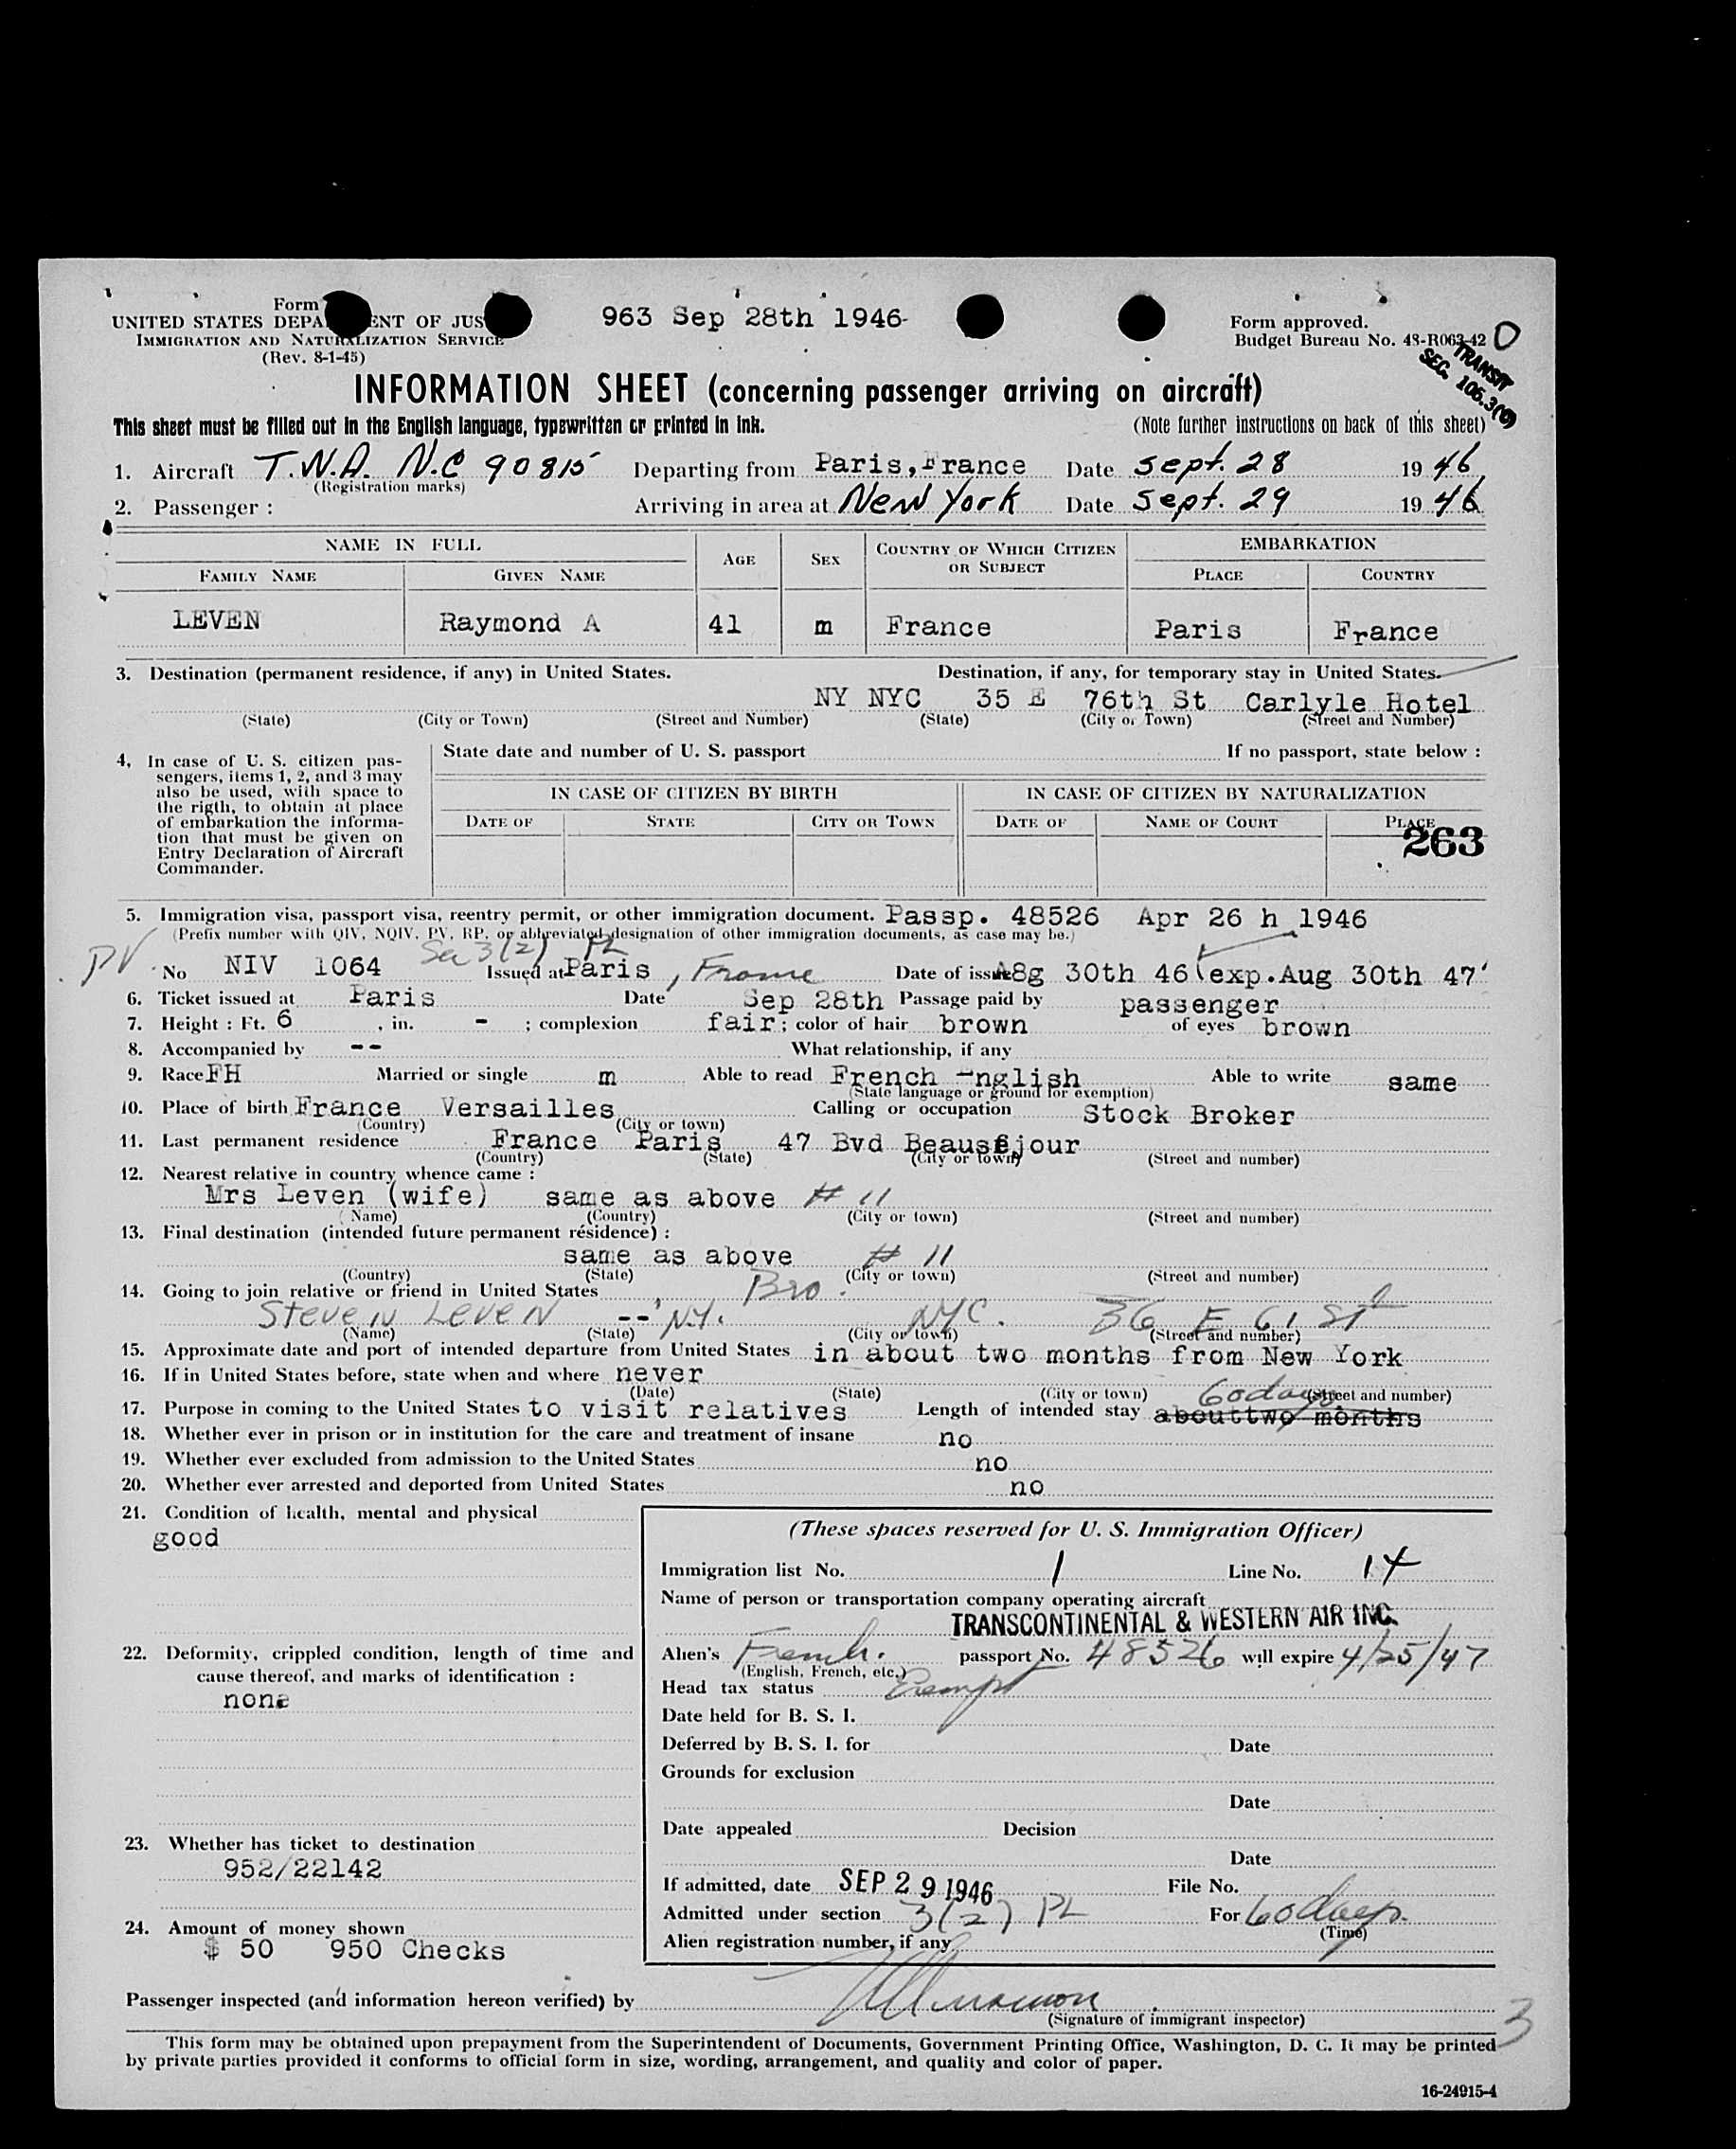 Form
963 Sep 28th 1946-
UNITED STATES DEPA ENT OF JUS
IMMIGRATION AND NATURALIZATION SERVICE
(Rev. 8-1-45)
Form approved.
Budget Bureau No. 43-R063-42
TRANSIT
SEC. 106.3
INFORMATION SHEET (concerning passenger arriving on aircraft)
This sheet must be filled out in the English language, typewritten or printed in ink.
(Note further instructions on back of this sheet)
1. Aircraft T.W.A. N.C 90815 Departing from Paris, France Date Sept. 28 1946
(Registration marks)
2. Passenger : Arriving in area at New York Date Sept. 29 1946
NAME IN FULL AGE SEX COUNTRY OF WHICH CITIZEN OR SUBJECT EMBARKATION
FAMILY NAME GIVEN NAME PLACE COUNTRY
LEVEN Raymond A 41 m France Paris France
3. Destination (permanent residence, if any) in United States. Destination, if any, for temporary stay in United States.
NY NYC 35 E 76th St Carlyle Hotel
(State) (City or Town) (Street and Number) (State) (City or Town) (Street and Number)
4. In case of U. S. citizen pas-
sengers, items 1, 2, and 3 may
also be used, with space to
the rigth, to obtain at place
of embarkation the informa-
tion that must be given on
Entry Declaration of Aircraft
Commander.
State date and number of U. S. passport If no passport, state below :
IN CASE OF CITIZEN BY BIRTH IN CASE OF CITIZEN BY NATURALIZATION
DATE OF STATE CITY OR TOWN DATE OF NAME OF COURT PLACE
263
5. Immigration visa, passport visa, reentry permit, or other immigration document. Passp. 48526 Apr 26 h 1946
(Prefix number with QIV, NQIV, PV, RP, or abbreviated designation of other immigration documents, as case may be.)
PV Sec 3(2) PL
No NIV 1064 Issued at Paris, France Date of issue A8g 30th 46 (exp.Aug 30th 47
6. Ticket issued at Paris Date Sep 28th Passage paid by passenger
7. Height : Ft. 6 , in. - ; complexion fair ; color of hair brown of eyes brown
8. Accompanied by -- What relationship, if any
9. Race FH Married or single m Able to read French -nglish Able to write same
(State language or ground for exemption)
10. Place of birth France Versailles Calling or occupation Stock Broker
(Country) (City or town)
11. Last permanent residence France Paris 47 Bvd Beausejour
(Country) (State) (City or town) (Street and number)
12. Nearest relative in country whence came :
Mrs Leven (wife) same as above # 11
(Name) (Country) (City or town) (Street and number)
13. Final destination (intended future permanent résidence) :
same as above # 11
(Country) (State) (City or town) (Street and number)
14. Going to join relative or friend in United States Bro.
Steven Leven --, N.Y. NYC. 36 E 61 St
(Name) (State) (City or town) (Street and number)
15. Approximate date and port of intended departure from United States in about two months from New York
16. If in United States before, state when and where never
(Date) (State) (City or town) (Street and number)
60 days
17. Purpose in coming to the United States to visit relatives Length of intended stay abouttwo months
18. Whether ever in prison or in institution for the care and treatment of insane no
19. Whether ever excluded from admission to the United States no
20. Whether ever arrested and deported from United States no
21. Condition of health, mental and physical
good
22. Deformity, crippled condition, length of time and
cause thereof, and marks of identification :
none
23. Whether has ticket to destination
952/22142
24. Amount of money shown
$ 50 950 Checks
(These spaces reserved for U. S. Immigration Officer)
Immigration list No. 1 Line No. 14
Name of person or transportation company operating aircraft
TRANSCONTINENTAL & WESTERN AIR INC.
Alien's French. passport No. 48526 will expire 4/25/47
(English, French, etc.)
Head tax status Exempt
Date held for B. S. I.
Deferred by B. S. I. for Date
Grounds for exclusion
Date
Date appealed Decision
Date
If admitted, date SEP 29 1946 File No.
Admitted under section 3(2) PL For 60 days.
(Time)
Alien registration number, if any
Passenger inspected (and information hereon verified) by
(Signature of immigrant inspector)
3
This form may be obtained upon prepayment from the Superintendent of Documents, Government Printing Office, Washington, D. C. It may be printed
by private parties provided it conforms to official form in size, wording, arrangement, and quality and color of paper.
16-24915-4